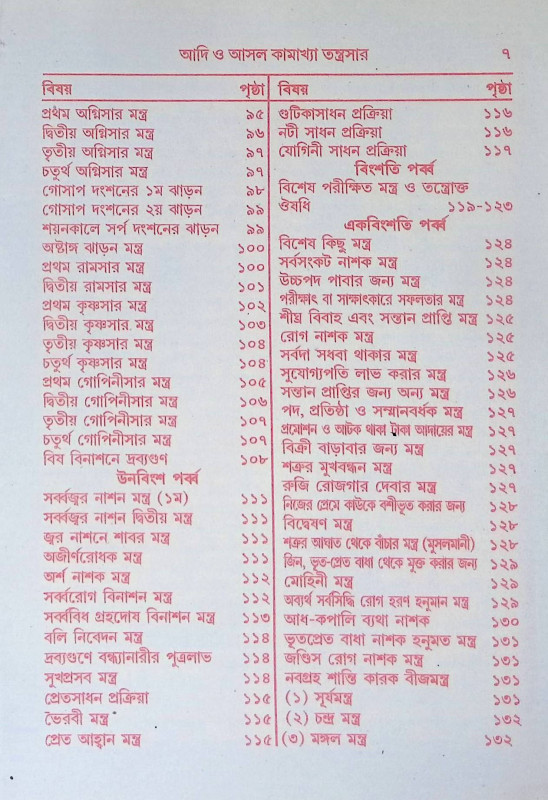 আদি ও আসল কামাখ্যা তন্ত্রসার ৭
বিষয় পৃষ্ঠা
প্রথম অগ্নিসার মন্ত্র ৯৫
দ্বিতীয় অগ্নিসার মন্ত্র ৯৬
তৃতীয় অগ্নিসার মন্ত্র ৯৭
চতুর্থ অগ্নিসার মন্ত্র ৯৭
গোসাপ দংশনের ১ম ঝাড়ন ৯৮
গোসাপ দংশনের ২য় ঝাড়ন ৯৯
শয়নকালে সর্প দংশনের ঝাড়ন ৯৯
অষ্টাঙ্গ ঝাড়ন মন্ত্র ১০০
প্রথম রামসার মন্ত্র ১০০
দ্বিতীয় রামসার মন্ত্র ১০১
প্রথম কৃষ্ণসার মন্ত্র ১০২
দ্বিতীয় কৃষ্ণসার মন্ত্র ১০৩
তৃতীয় কৃষ্ণসার মন্ত্র ১০৪
চতুর্থ কৃষ্ণসার মন্ত্র ১০৪
প্রথম গোপিনীসার মন্ত্র ১০৫
দ্বিতীয় গোপিনীসার মন্ত্র ১০৬
তৃতীয় গোপিনীসার মন্ত্র ১০৭
চতুর্থ গোপিনীসার মন্ত্র ১০৭
বিষ বিনাশনে দ্রব্যগুণ ১০৮
উনবিংশ পর্ব্ব
সর্ব্বজ্বর নাশন মন্ত্র (১ম) ১১১
সর্ব্বজ্বর নাশন দ্বিতীয় মন্ত্র ১১১
জ্বর নাশনে শাবর মন্ত্র ১১১
অজীর্ণরোধক মন্ত্র ১১১
অর্শ নাশক মন্ত্র ১১২
সর্ব্বরোগ বিনাশন মন্ত্র ১১২
সর্ব্ববিধ গ্রহদোষ বিনাশন মন্ত্র ১১৩
বলি নিবেদন মন্ত্র ১১৪
দ্রব্যগুণে বন্ধ্যানারীর পুত্রলাভ ১১৪
সুখপ্রসব মন্ত্র ১১৪
প্রেতসাধন প্রক্রিয়া ১১৫
ভৈরবী মন্ত্র ১১৫
প্রেত আহ্বান মন্ত্র ১১৫
বিষয় পৃষ্ঠা
গুটিকাসাধন প্রক্রিয়া ১১৬
নটী সাধন প্রক্রিয়া ১১৬
যোগিনী সাধন প্রক্রিয়া ১১৭
বিংশতি পর্ব্ব
বিশেষ পরীক্ষিত মন্ত্র ও তন্ত্রোক্ত
ঔষধি ১১৯-১২৩
একবিংশতি পর্ব্ব
বিশেষ কিছু মন্ত্র ১২৪
সর্বসংকট নাশক মন্ত্র ১২৪
উচ্চপদ পাবার জন্য মন্ত্র ১২৪
পরীক্ষাৎ বা সাক্ষাৎকারে সফলতার মন্ত্র ১২৪
শীঘ্র বিবাহ এবং সন্তান প্রাপ্তি মন্ত্র ১২৫
রোগ নাশক মন্ত্র ১২৫
সর্বদা সধবা থাকার মন্ত্র ১২৫
সুযোগ্যপতি লাভ করার মন্ত্র ১২৬
সন্তান প্রাপ্তির জন্য অন্য মন্ত্র ১২৬
পদ, প্রতিষ্ঠা ও সম্মানবর্ধক মন্ত্র ১২৭
প্রমোশন ও আটক থাকা টাকা আদায়ের মন্ত্র ১২৭
বিক্রী বাড়াবার জন্য মন্ত্র ১২৭
শত্রুর মুখবন্ধন মন্ত্র ১২৭
রুজি রোজগার দেবার মন্ত্র ১২৭
নিজের প্রেমে কাউকে বশীভূত করার জন্য ১২৮
বিদ্বেষণ মন্ত্র ১২৮
শত্রুর আঘাত থেকে বাঁচার মন্ত্র (মুসলমানী) ১২৮
জিন, ভূত-প্রেত বাধা থেকে মুক্ত করার জন্য ১২৯
মোহিনী মন্ত্র ১২৯
অব্যর্থ সর্বসিদ্ধি রোগ হরণ হনুমান মন্ত্র ১২৯
আধ-কপালি ব্যথা নাশক ১৩০
ভূতপ্রেত বাধা নাশক হনুমত মন্ত্র ১৩১
জণ্ডিস রোগ নাশক মন্ত্র ১৩১
নবগ্রহ শান্তি কারক বীজমন্ত্র ১৩১
(১) সূর্যমন্ত্র ১৩১
(২) চন্দ্র মন্ত্র ১৩২
(৩) মঙ্গল মন্ত্র ১৩২